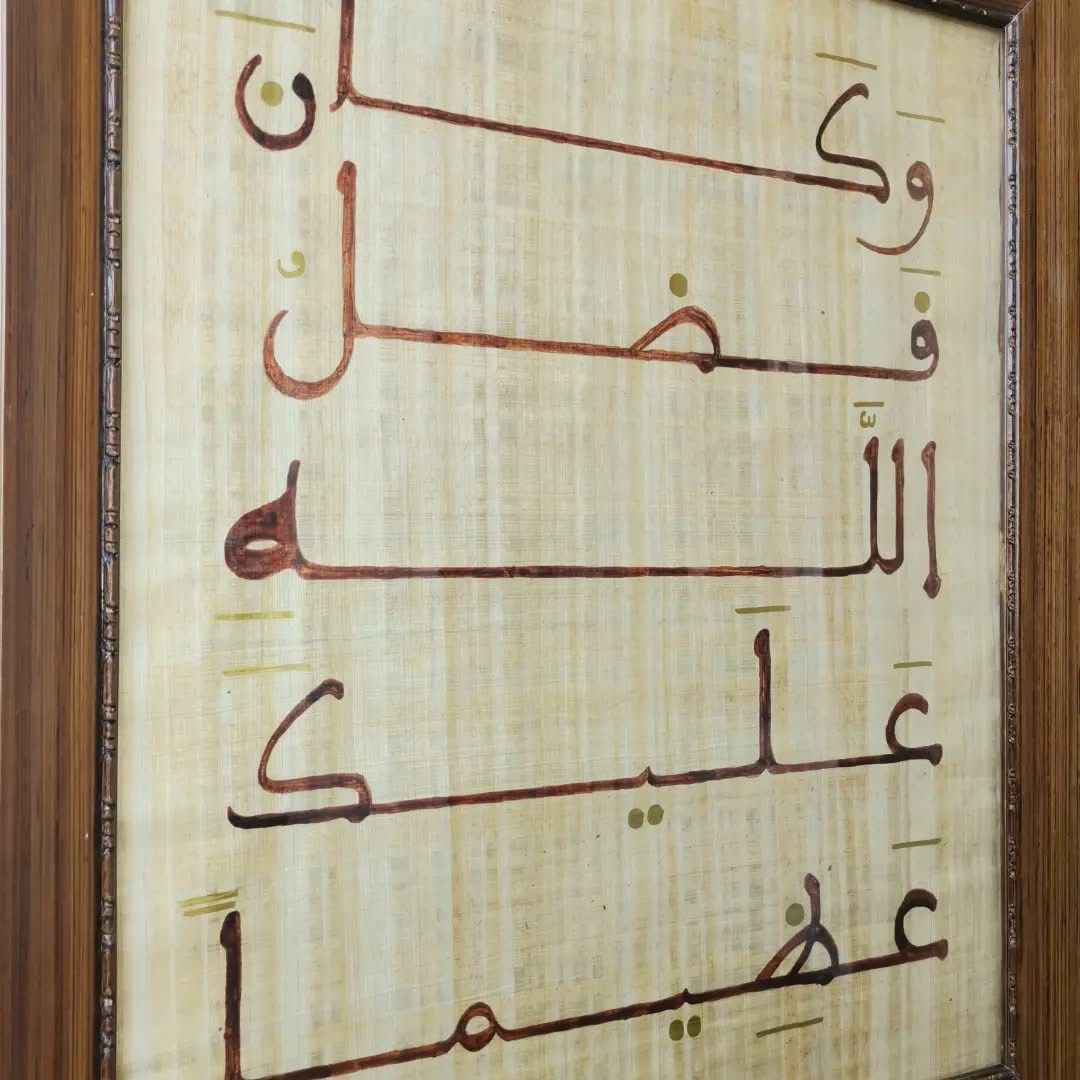 وَكَانَ
فَضلُ
اللَّهِ
عَلَيكَ
عَظِيماً